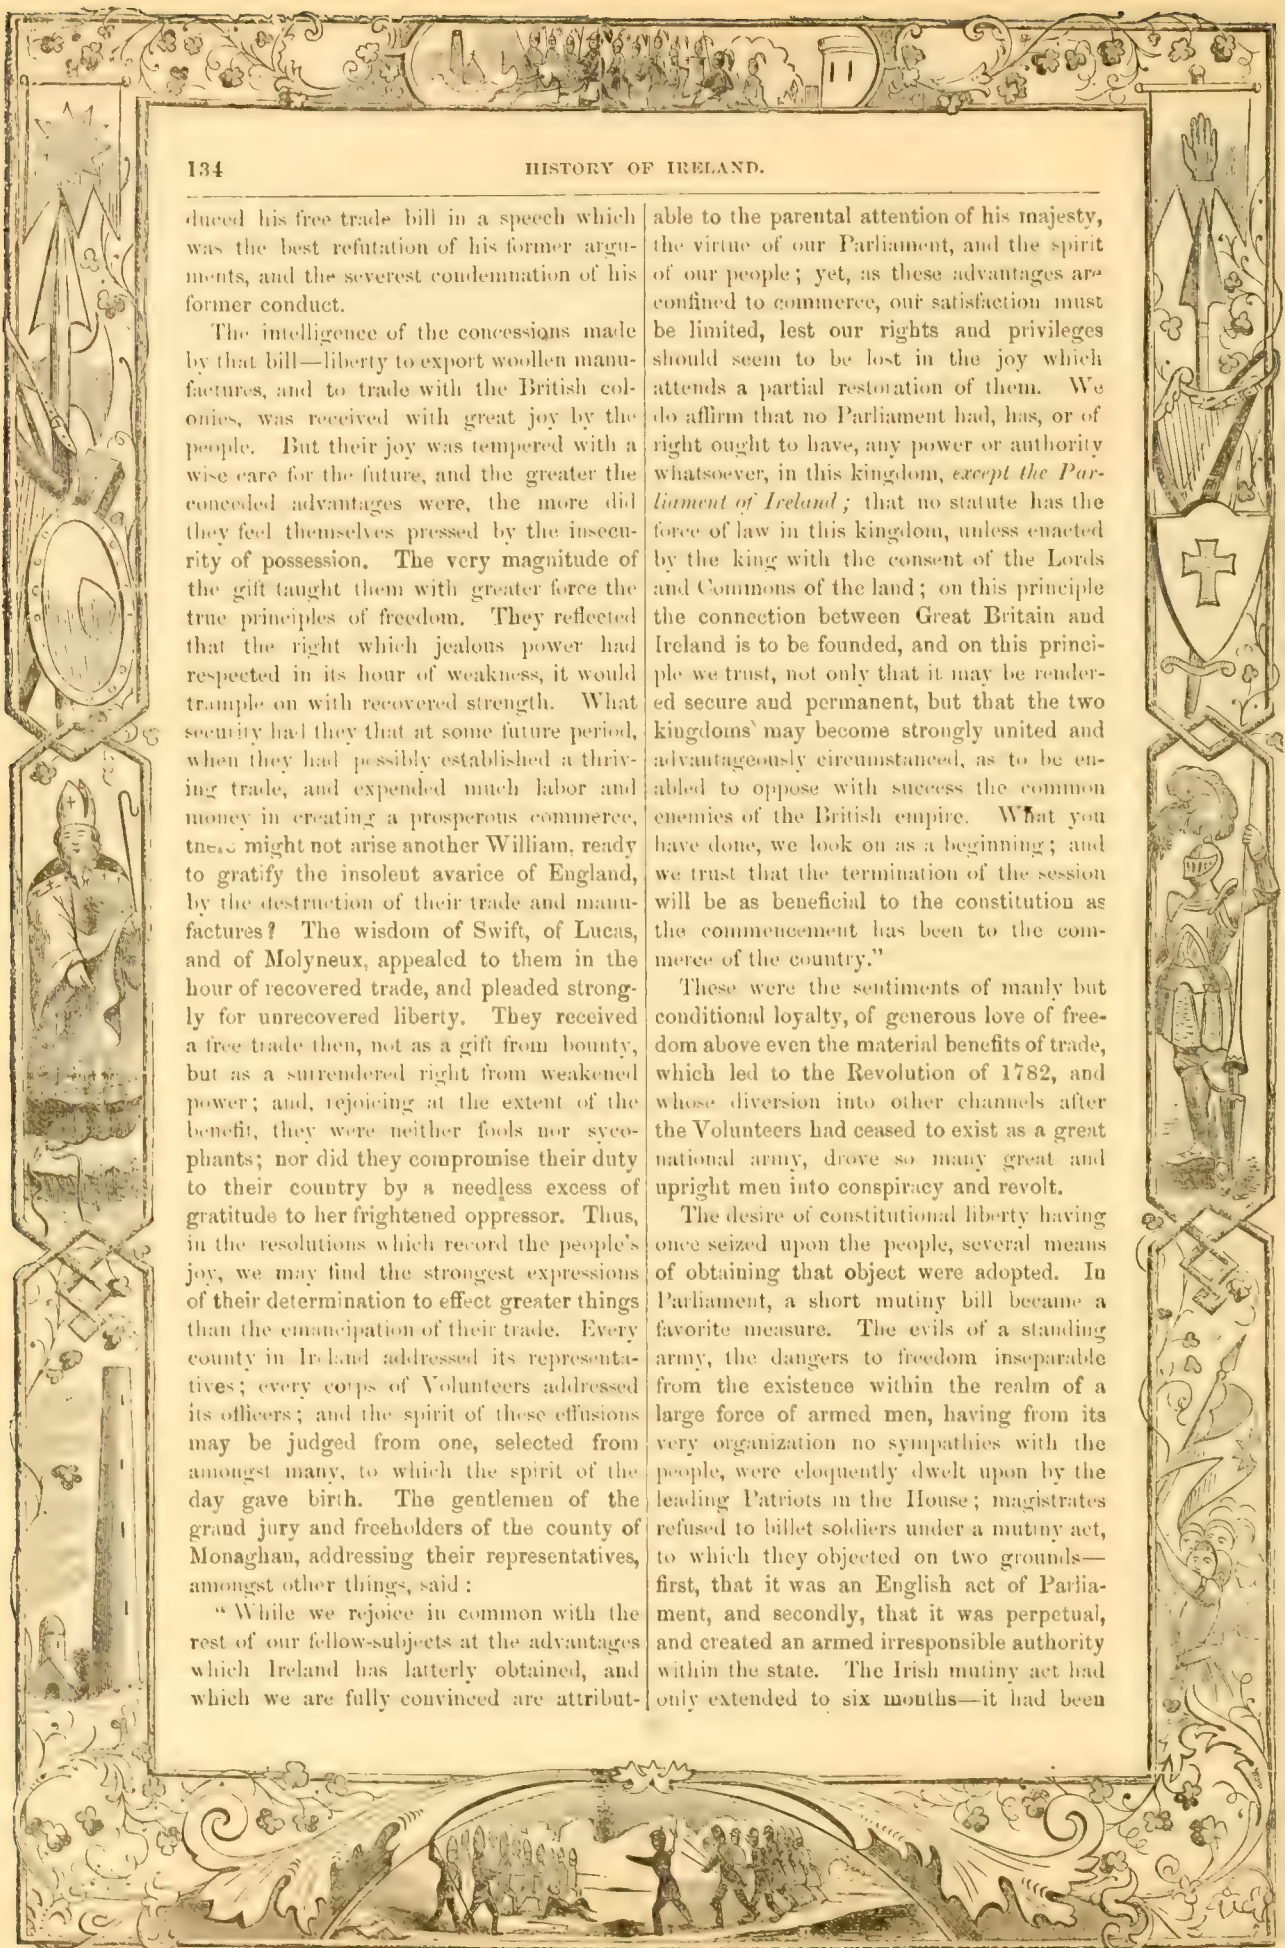 134
HISTORY OF IRELAND.
duced his free trade bill in a speech which
was the best refutation of his former argu-
ments, and the severest condemnation of his
former conduct.
The intelligence of the concessions made
by that bill—liberty to export woollen manu-
factures, and to trade with the British col-
onies, was received with great joy by the
people. But their joy was tempered with a
wise care for the future, and the greater the
conceded advantages were, the more did
they feel themselves pressed by the insecu-
rity of possession. The very magnitude of
the gift taught them with greater force the
true principles of freedom. They reflected
that the right which jealous power had
respected in its hour of weakness, it would
trample on with recovered strength. What
security had they that at some future period,
when they had possibly established a thriv-
ing trade, and expended much labor and
money in creating a prosperous commerce,
there might not arise another William, ready
to gratify the insolent avarice of England,
by the destruction of their trade and manu-
factures? The wisdom of Swift, of Lucas,
and of Molyneux, appealed to them in the
hour of recovered trade, and pleaded strong-
ly for unrecovered liberty. They received
a free trade then, not as a gift from bounty,
but as a surrendered right from weakened
power; and, rejoicing at the extent of the
benefit, they were neither fools nor syco-
phants; nor did they compromise their duty
to their country by a needless excess of
gratitude to her frightened oppressor. Thus,
in the resolutions which record the people's
joy, we may find the strongest expressions
of their determination to effect greater things
than the emancipation of their trade. Every
county in Ireland addressed its representa-
tives; every corps of Volunteers addressed
its officers; and the spirit of these effusions
may be judged from one, selected from
amongst many, to which the spirit of the
day gave birth. The gentlemen of the
grand jury and freeholders of the county of
Monaghan, addressing their representatives,
amongst other things, said:
"While we rejoice in common with the
rest of our fellow-subjects at the advantages
which Ireland has latterly obtained, and
which we are fully convinced are attribut-
able to the parental attention of his majesty,
the virtue of our Parliament, and the spirit
of our people; yet, as these advantages are
confined to commerce, our satisfaction must
be limited, lest our rights and privileges
should seem to be lost in the joy which
attends a partial restoration of them. We
do affirm that no Parliament had, has, or of
right ought to have, any power or authority
whatsoever, in this kingdom, except the Par-
liament of Ireland; that no statute has the
force of law in this kingdom, unless enacted
by the king with the consent of the Lords
and Commons of the land; on this principle
the connection between Great Britain and
Ireland is to be founded, and on this princi-
ple we trust, not only that it may be render-
ed secure and permanent, but that the two
kingdoms may become strongly united and
advantageously circumstanced, as to be en-
abled to oppose with success the common
enemies of the British empire. What you
have done, we look on as a beginning; and
we trust that the termination of the session
will be as beneficial to the constitution as
the commencement has been to the com-
merce of the country."
These were the sentiments of manly but
conditional loyalty, of generous love of free-
dom above even the material benefits of trade,
which led to the Revolution of 1782, and
whose diversion into other channels after
the Volunteers had ceased to exist as a great
national army, drove so many great and
upright men into conspiracy and revolt.
The desire of constitutional liberty having
once seized upon the people, several means
of obtaining that object were adopted. In
Parliament, a short mutiny bill became a
favorite measure. The evils of a standing
army, the dangers to freedom inseparable
from the existence within the realm of a
large force of armed men, having from its
very organization no sympathies with the
people, were eloquently dwelt upon by the
leading Patriots in the House; magistrates
refused to billet soldiers under a mutiny act,
to which they objected on two grounds—
first, that it was an English act of Parlia-
ment, and secondly, that it was perpetual,
and created an armed irresponsible authority
within the state. The Irish mutiny act had
only extended to six months—it had been